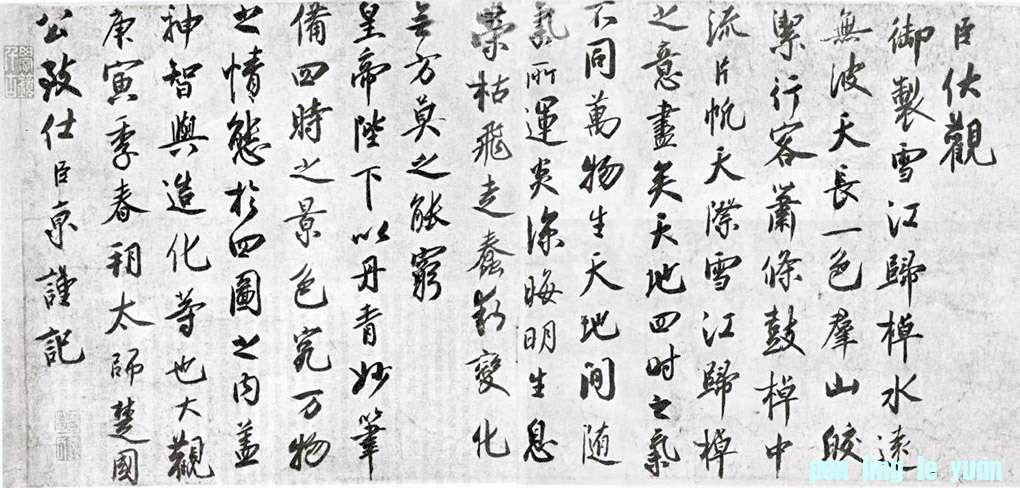 臣伏觀
御製雪江歸棹水遠
無波天長一色羣山皎
潔行客蕭條鼓棹中
流片帆天際雪江歸棹
之意盡矣天地四时之氣
不同萬物生天地間随
氣所運炎涼晦明生息
榮枯飛走蠢動變化
無方莫之能窮
皇帝陛下以丹青妙筆
備四時之景色究万物
之情態於四圖之内盖
神智與造化等也大觀
庚寅季春朔太師楚國
公致仕臣京謹記